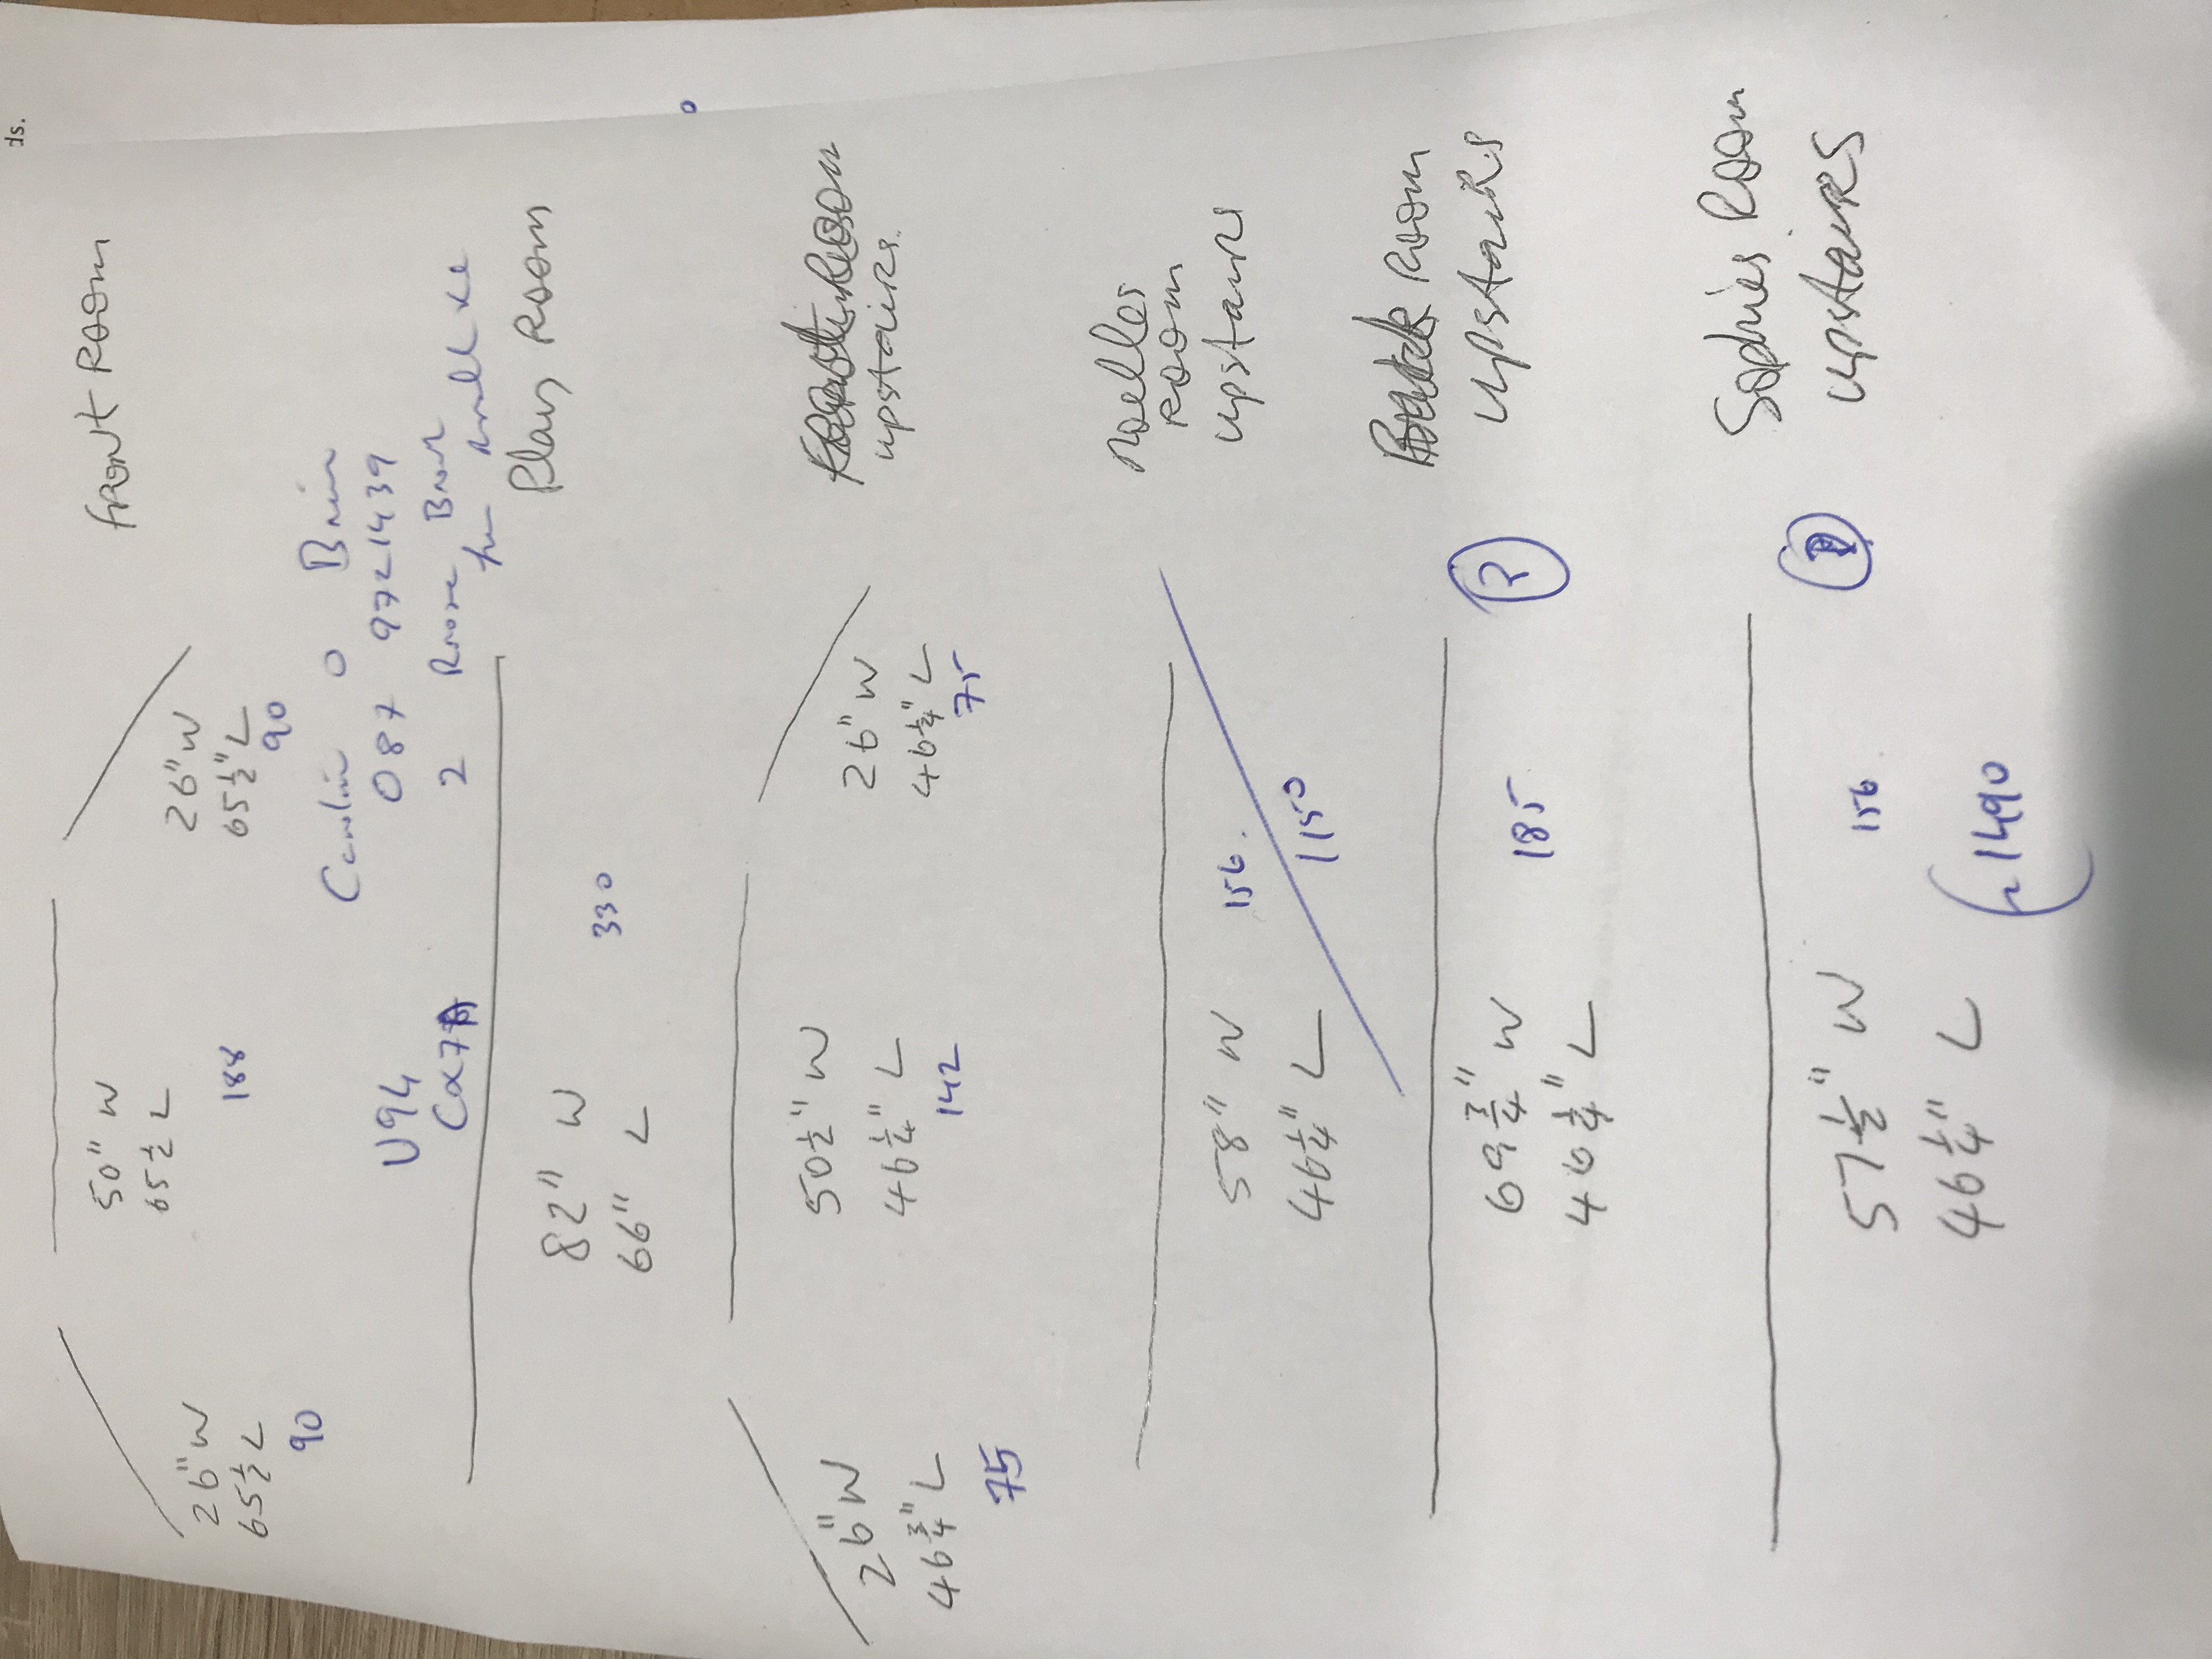 ds.
Front Room
26" W
65 1/2" L
90
50" W
65 1/2 L
188
26" W
65 1/2" L
90
O Brien
087 9721439
2
U94
Play Room
82" W
66" L
330
Room
upstairs
26" W
46 3/4" L
75
50 1/2" W
46 1/4" L
142
26" W
46 1/4" L
75
Noelles
Room
upstairs
58" W
46 1/4" L
156.
1150
Room
upstairs
69 3/4" W
46 3/4" L
185
2
Sophies Room
upstairs
57 1/2" W
46 1/4" L
156
1490